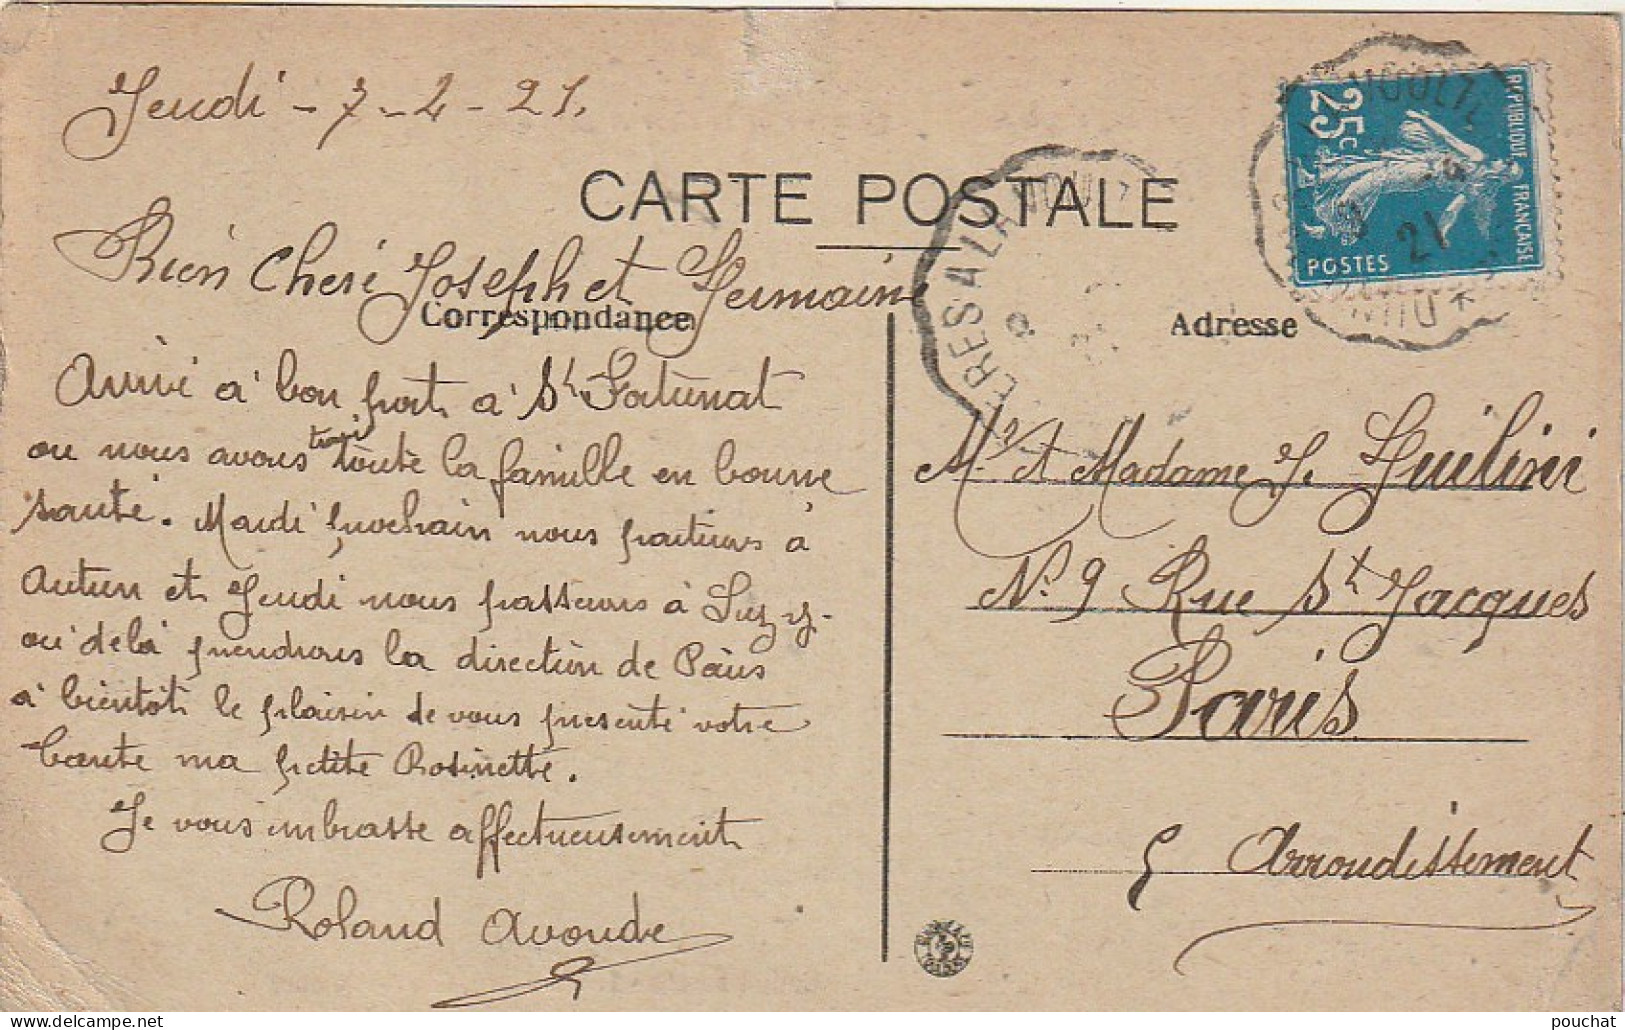 Jeudi - 7-4-21.
CARTE POSTALE
Bien Cheri Joseph et Germaine
Correspondance
Arrivé a' bon port a' St Fortunat
ou nous avons trouvé toute la famille en bonne
santé. Mardi prochain nous partirons à
Autun et Jeudi nous passerons à Luzy-
ou de là prendrons la direction de Paris
a' bientôt le plaisir de vous presenté votre
tante ma petite Rosinette.
Je vous embrasse affectueusement
Roland
Adresse
Mr et Madame J.
No 9 Rue St Jacques
Paris
5 Arrondissement
REPUBLIQUE FRANCAISE
25c
POSTES
21
pouchat